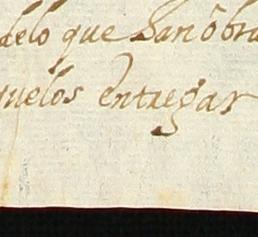 delo que han obra
quelos entregar